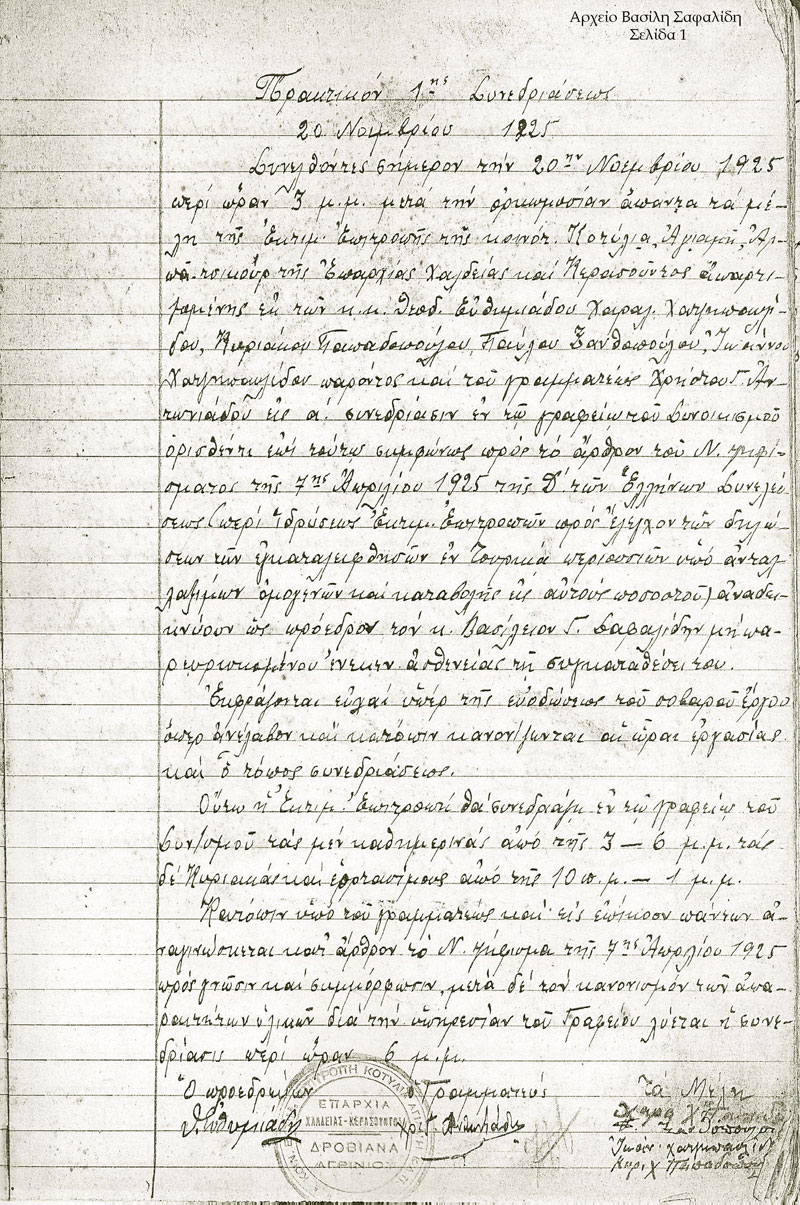 Αρχείο Βασίλη Σαφαλίδη
Σελίδα 1
Πρακτικόν 1ης Συνεδριάσεως
20 Νοεμβρίου 1925
Συνελθόντες σήμερον την 20ην Νοεμβρίου 1925
περί ὥραν 3 μ.μ. μετά την ὁρκωμοσίαν ἅπαντα τα μέ-
λη τῆς Ἐκτιμ. Ἐπιτροπῆς τῆς κοινότ. Κοτύλια,
τῆς Ἐπαρχίας Χαλδείας καί Κερασοῦντος ἀπαρτι-
ζομένης ἐκ τῶν κ.κ. Θεοδ. Εὐθυμιάδου Χαραλ. Χατζηπαυλί-
δου, Κυριάκου Παπαδοπούλου, Παύλου Ξανθοπούλου, Ἰωάννου
Χατζηπαυλίδου παρόντος καί τοῦ γραμματέως Χρήστου Γ. Ἀν-
τωνιάδου εἰς α΄. συνεδρίασιν ἐν τῷ γραφείῳ τοῦ Συνοικισμοῦ
ὁρισθέντι ἐπί τούτῳ συμφώνως πρός τό ἄρθρον τοῦ Ν. ψηφί-
σματος τῆς 7ης Ἀπριλίου 1925 τῆς Δ΄. τῶν Ἑλλήνων Συνελεύ
σεως (περί ἱδρύσεως Ἐκτιμ. Ἐπιτροπῶν πρός ἔλεγχον τῶν δηλώ-
σεων τῶν ἐγκαταλειφθησῶν ἐν Τουρκίᾳ περιουσιῶν ὑπό ἀνταλ-
λαξίμων ὁμογενῶν καί καταβολῆς εἰς αὐτούς ποσοστοῦ) ἀναδει-
κνύουν ὡς πρόεδρον τόν κ. Βασίλειον Γ. Σαφαλίδην μή πα-
ρευρισκομένου ἕνεκεν ἀσθενείας τῇ συγκαταθέσει του.
Ἐκφράζονται εὐχαί ὑπέρ τῆς εὐοδώσεως τοῦ σοβαροῦ ἔργου
ὅπερ ἀνέλαβον καί κατόπιν κανονίζονται αἱ ὧραι ἐργασίας
καί ὁ τόπος συνεδριάσεως.
Οὕτω ἡ Ἐκτιμ. Ἐπιτροπή θά συνεδριάζῃ ἐν τῷ γραφείῳ τοῦ
Συν/σμοῦ τάς μέν καθημερινάς ἀπό τῆς 3 – 6 μ.μ. τάς
δέ Κυριακάς καί ἑορτασίμους ἀπό τῆς 10 π.μ. – 1 μ.μ.
Κατόπιν ὑπό τοῦ γραμματέως καί εἰς ἐπήκοον πάντων ἀ-
ναγινώσκεται κατ' ἄρθρον τό Ν. ψήφισμα τῆς 7ης Ἀπριλίου 1925
πρός γνῶσιν καί συμμόρφωσιν, μετά δέ τόν κανονισμόν τῶν ἀπα-
ραιτήτων ὑλικῶν διά τήν ὑπηρεσίαν τοῦ Γραφείου λύεται ἡ συνε-
δρίασις περί ὥραν 6 μ.μ.
Ὁ προεδρεύων ὁ Γραμματεύς τά Μέλη
Θ. Εὐθυμιάδης Χρ. Γ. Ἀντωνιάδης
Ξανθοπουλο
Ἰωάν. Χατζηπαυλίδ
ΕΠΑΡΧΙΑ
ΧΑΛΔΕΙΑΣ-ΚΕΡΑΣΟΥΝΤΟΣ
ΔΡΟΒΙΑΝΑ
ΑΓΡΙΝΙΟΥ